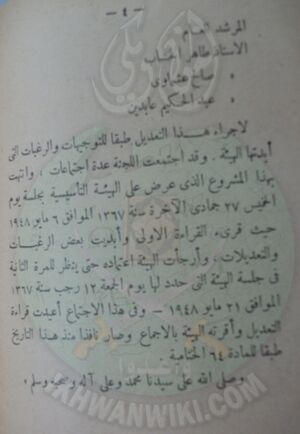 — ٤ —
المرشد العام
الاستاذ طاهر الخشاب
» صالح عشماوى
» عبد الحكيم عابدين
لاجراء هذا التعديل طبقا للتوجيهات والرغبات التى
أبدتها الهيئة . وقد اجتمعت اللجنة عدة اجتماعات ، وانتهت
بهذا المشروع الذى عرض على الهيئة التأسيسية بجلسة يوم
الخميس ٢٧ جمادى الآخرة سنة ١٣٦٧ الموافق ٦ مايو ١٩٤٨
حيث قرىء القراءة الأولى وأبديت بعض الرغبات
والتعديلات ، وأرجأت الهيئة اعتماده حتى ينظر للمرة الثانية
فى جلسة الهيئة التى حدد لها يوم الجمعة ١٢ رجب سنة ١٣٦٧
الموافق ٢١ مايو ١٩٤٨ — وفى هذا الاجتماع أعيدت قراءة
التعديل وأقرته الهيئة بالاجماع وصار نافذا منذ هذا التاريخ
طبقا للمادة ٦٤ الختامية .
وصلى الله على سيدنا محمد وعلى آله وصحبه وسلم ،
IKHWANWIKI.COM